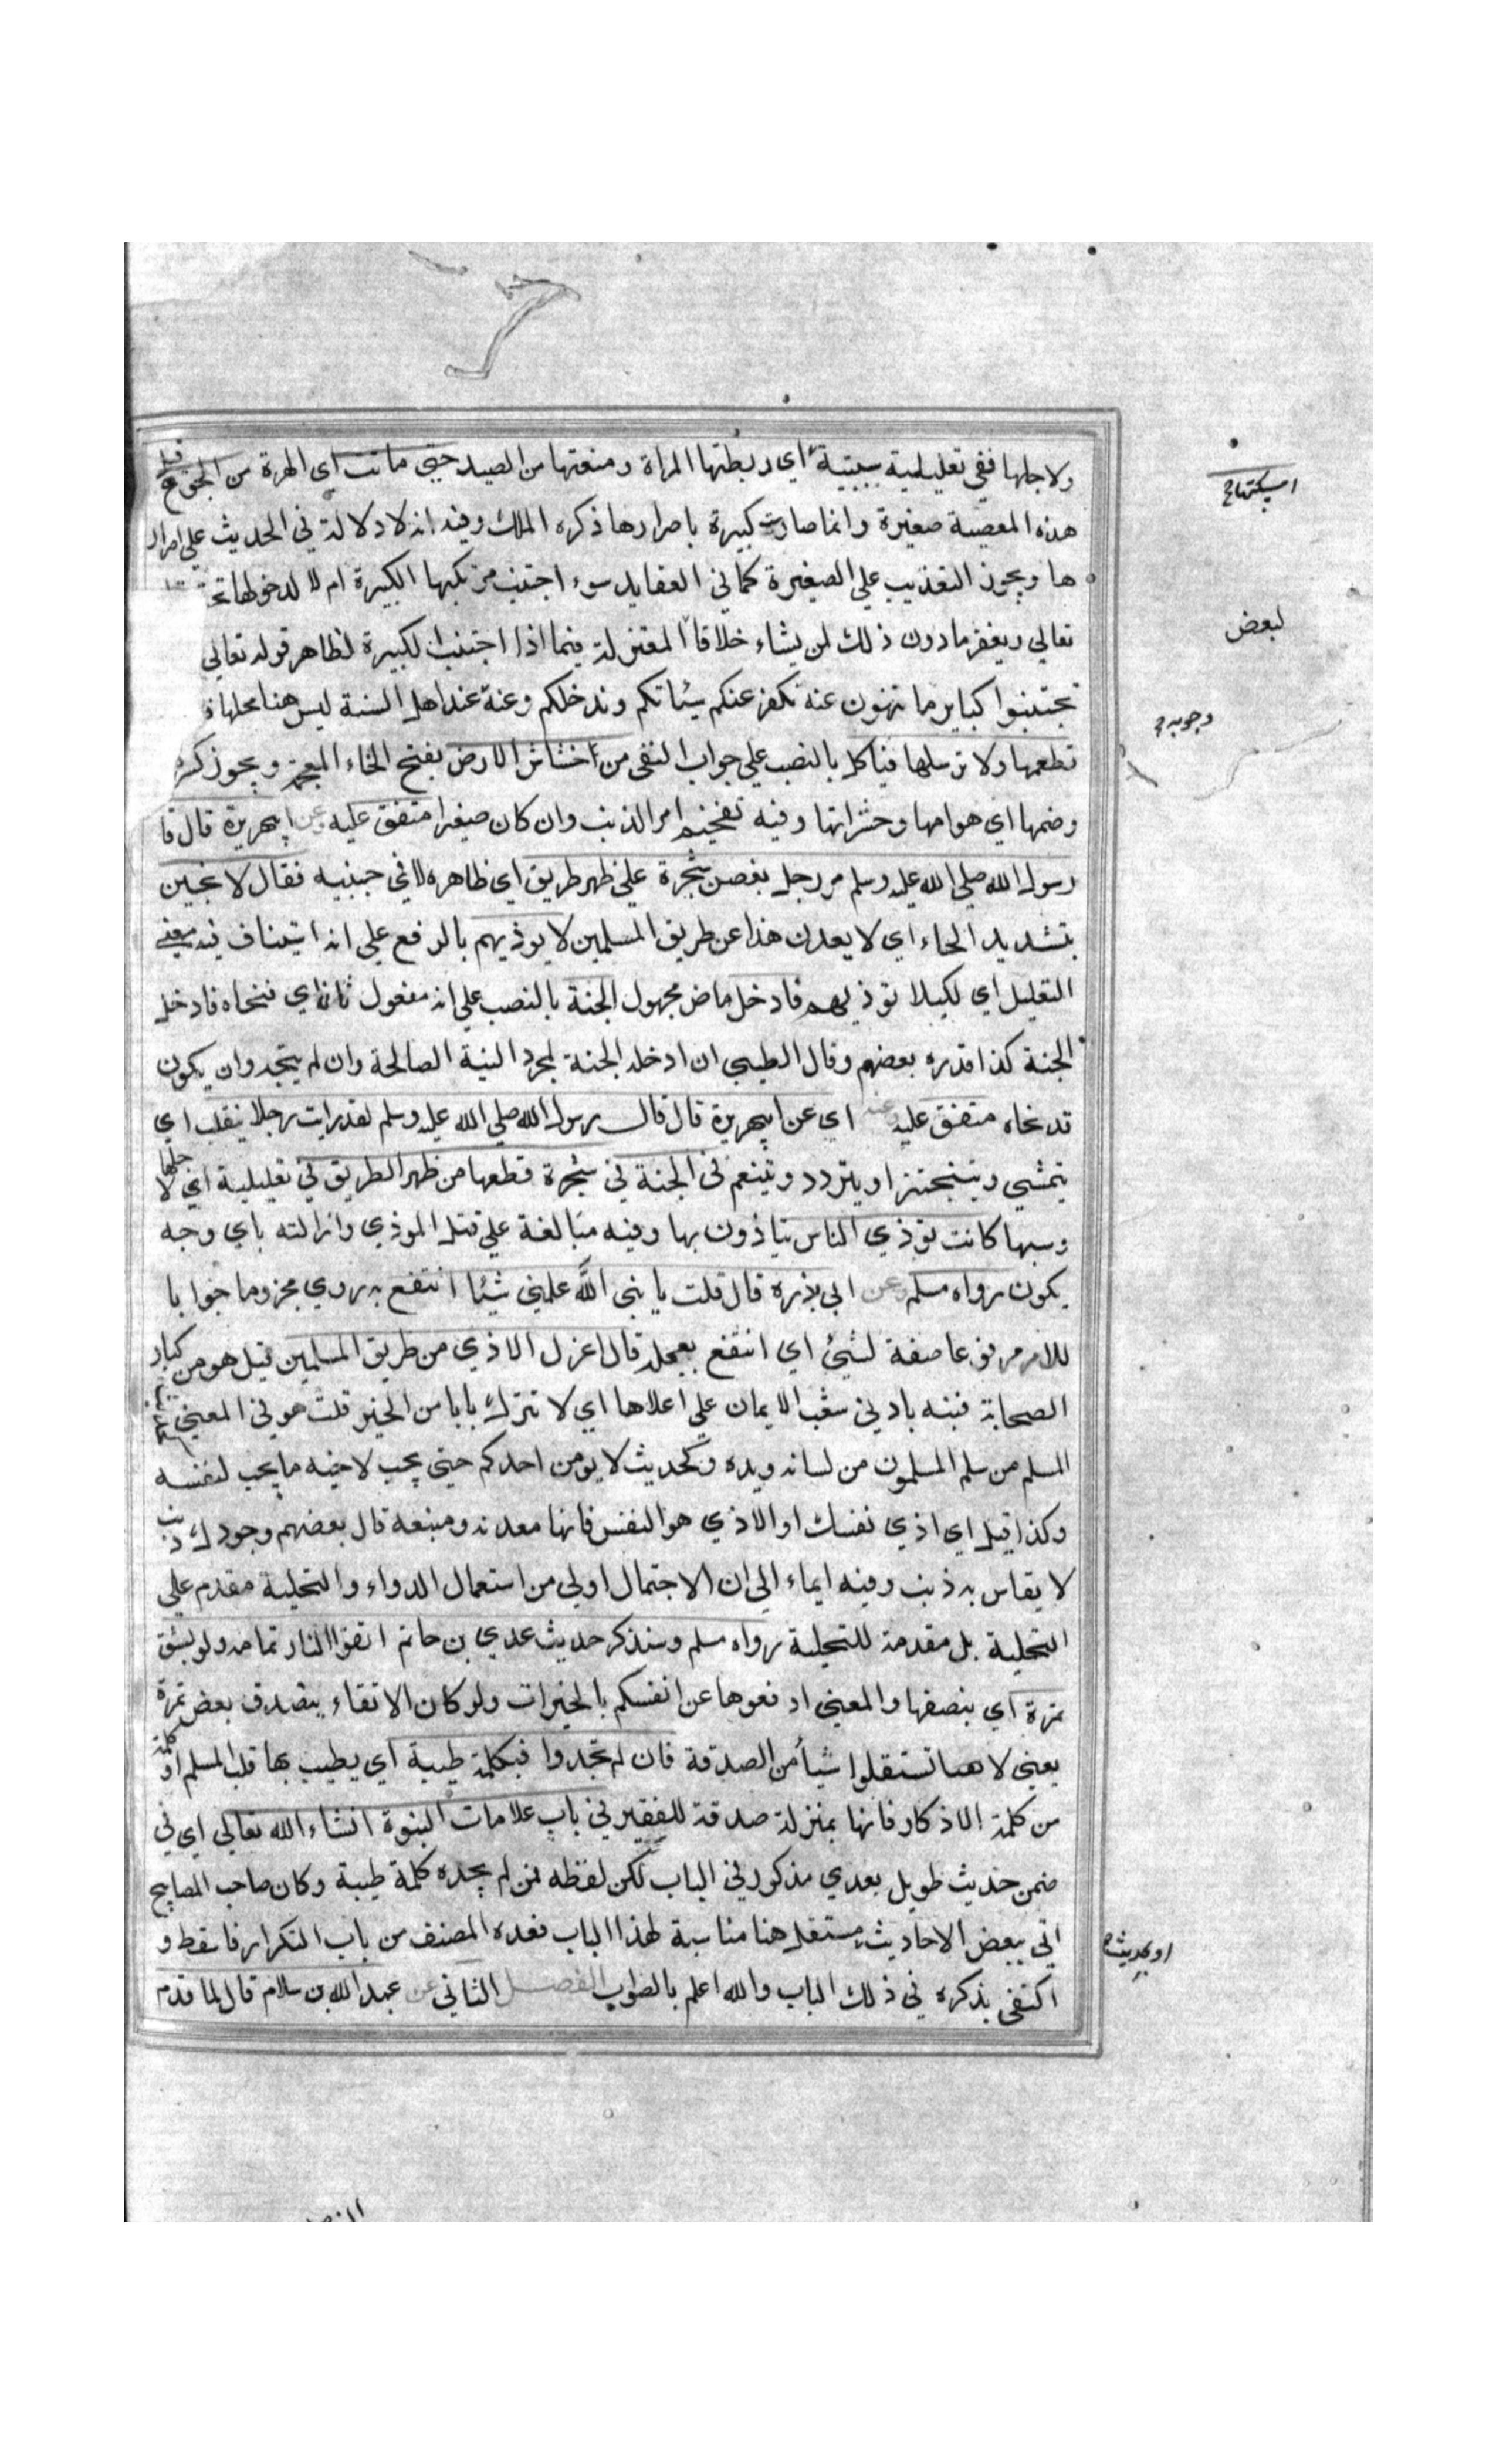 ولاجلها ففي تعليلية سببية اي ربطتها المراة ومنعتها من الصيد حتى ماتت اي الهرة من الجوع قيل
امسكتها
هذه المعصية صغيرة وانما صارت كبيرة باصرارها ذكره الملك وفيه انه لا دلالة في الحديث علي اصرار
ها ويجوز التعذيب علي الصغيرة كما في العقايد سوء اجتنب مرتكبها الكبيرة ام لا لدخولها تحت
تعالي ويغفر ما دون ذلك لمن يشاء خلافا المعتزلة فيما اذا اجتنب الكبيرة لظاهر قوله تعالي
لبعض
تجتنبوا كباير ما تنهون عنه نكفر عنكم سيئاتكم وندخلكم وعنه عند اهل السنة ليس هنا محلها
وجوبه
تطعمها ولا ترسلها فيأكل بالنصب علي جواب النفي من خشاش الارض بفتح الخاء المعجمة ويجوز كسر
وضمها اي هوامها وحشراتها وفيه تفخيم امر الذنب وان كان صغيرا متفق عليه وعن ابي هريرة قال قا
رسول الله صلي الله عليه وسلم مر رجل بغصن شجرة علي ظهر طريق اي ظاهره لا في جنبيه فقال لانحين
بتشديد الحاء اي لا يعدن هذا عن طريق المسلمين لا يوذيهم بالرفع علي انه استيناف فيه معني
التعليل اي لكيلا يوذيهم فادخل ماض مجهول الجنة بالنصب علي انه مفعول ثان اي فنحاه فادخل
الجنة كذا قدره بعضهم وقال الطيبي ان ادخله الجنة لمجرد النية الصالحة وان لم يتجد وان يكون
قد نحاه متفق عليه وعنه اي عن ابي هريرة قال قال رسول الله صلي الله عليه وسلم لقد رايت رجلا يتقلب اي
يتمشي ويتبختر او يتردد ويتنعم في الجنة في شجرة قطعها من ظهر الطريق في تعليلية اي لاجلها
وسببها كانت توذي الناس يتاذون بها وفيه مبالغة علي قتل الموذي وازالته باي وجه
يكون رواه مسلم وعن ابي برزة قال قلت يا نبي الله علمني شيئا انتفع به روي مجزوما جوابا
للامر مرفوعا صفة لشيئ اي انتفع بعمله قال اعزل الاذي من طريق المسلمين قيل هو من كبار
الصحابة فنبه بادني شعب الايمان علي اعلاها اي لا تترك بابا من الخير قلت هو في المعني
المسلم من سلم المسلمون من لسانه ويده وكحديث لا يومن احدكم حتي يحب لاخيه ما يحب لنفسه
وكذا قيل اي اذي نفسك او الاذي هو النفس فانها معدنه ومنبعه قال بعضهم وجودك ذنب
لا يقاس به ذنب وفيه ايماء الي ان الاحتمال اولي من استعمال الدواء والتخلية مقدم علي
التحلية بل مقدمة للتحلية رواه مسلم وسنذكر حديث عدي بن حاتم اتقوا النار تمامه ولو بشق
تمرة اي بنصفها والمعني ادفعوها عن انفسكم بالخيرات ولو كان الاتقاء بتصدق بعض تمرة
يعني لا تستقلوا شيأ من الصدقة فان لم تجدوا فبكلمة طيبة اي يطيب بها قلب المسلم او كلمة
من كلمة الاذكار فانها بمنزلة صدقة للفقير في باب علامات النبوة انشاء الله تعالي اي في
ضمن حديث طويل بعدي مذكور في الباب لكن لفظه فمن لم يجده كلمة طيبة وكان صاحب المصابيح
اتي ببعض الاحاديث مستقلا هنا مناسبة لهذا الباب فعده المصنف من باب التكرار فاسقط و
او بحديث
اكتفي بذكره في ذلك الباب والله اعلم بالصواب الفصل الثاني عن عبد الله بن سلام قال لما قدم